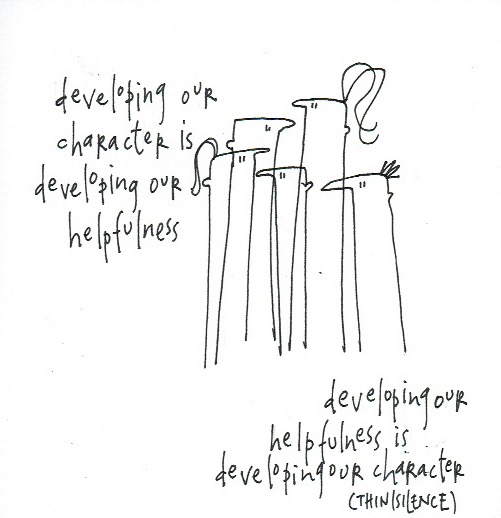 developing our
character is
developing our
helpfulness
developing our
helpfulness is
developing our character
(THINSILENCE)